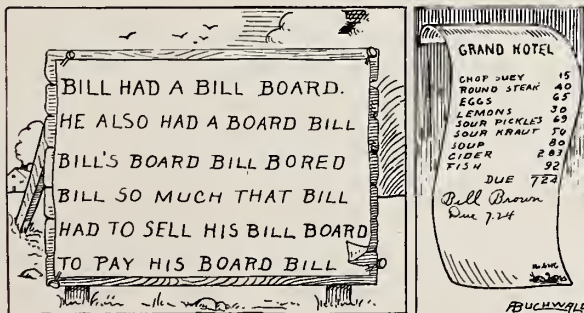 BILL HAD A BILL BOARD.
HE ALSO HAD A BOARD BILL
BILL'S BOARD BILL BORED
BILL SO MUCH THAT BILL
HAD TO SELL HIS BILL BOARD
TO PAY HIS BOARD BILL
GRAND HOTEL
CHOP SUEY 15
ROUND STEAK 40
EGGS 65
LEMONS 30
SOUR PICKLES 69
SOUR KRAUT 50
SOUP 80
CIDER 283
FISH 92
DUE 724
Bill Brown
Due 7.24
ABUCHWALD